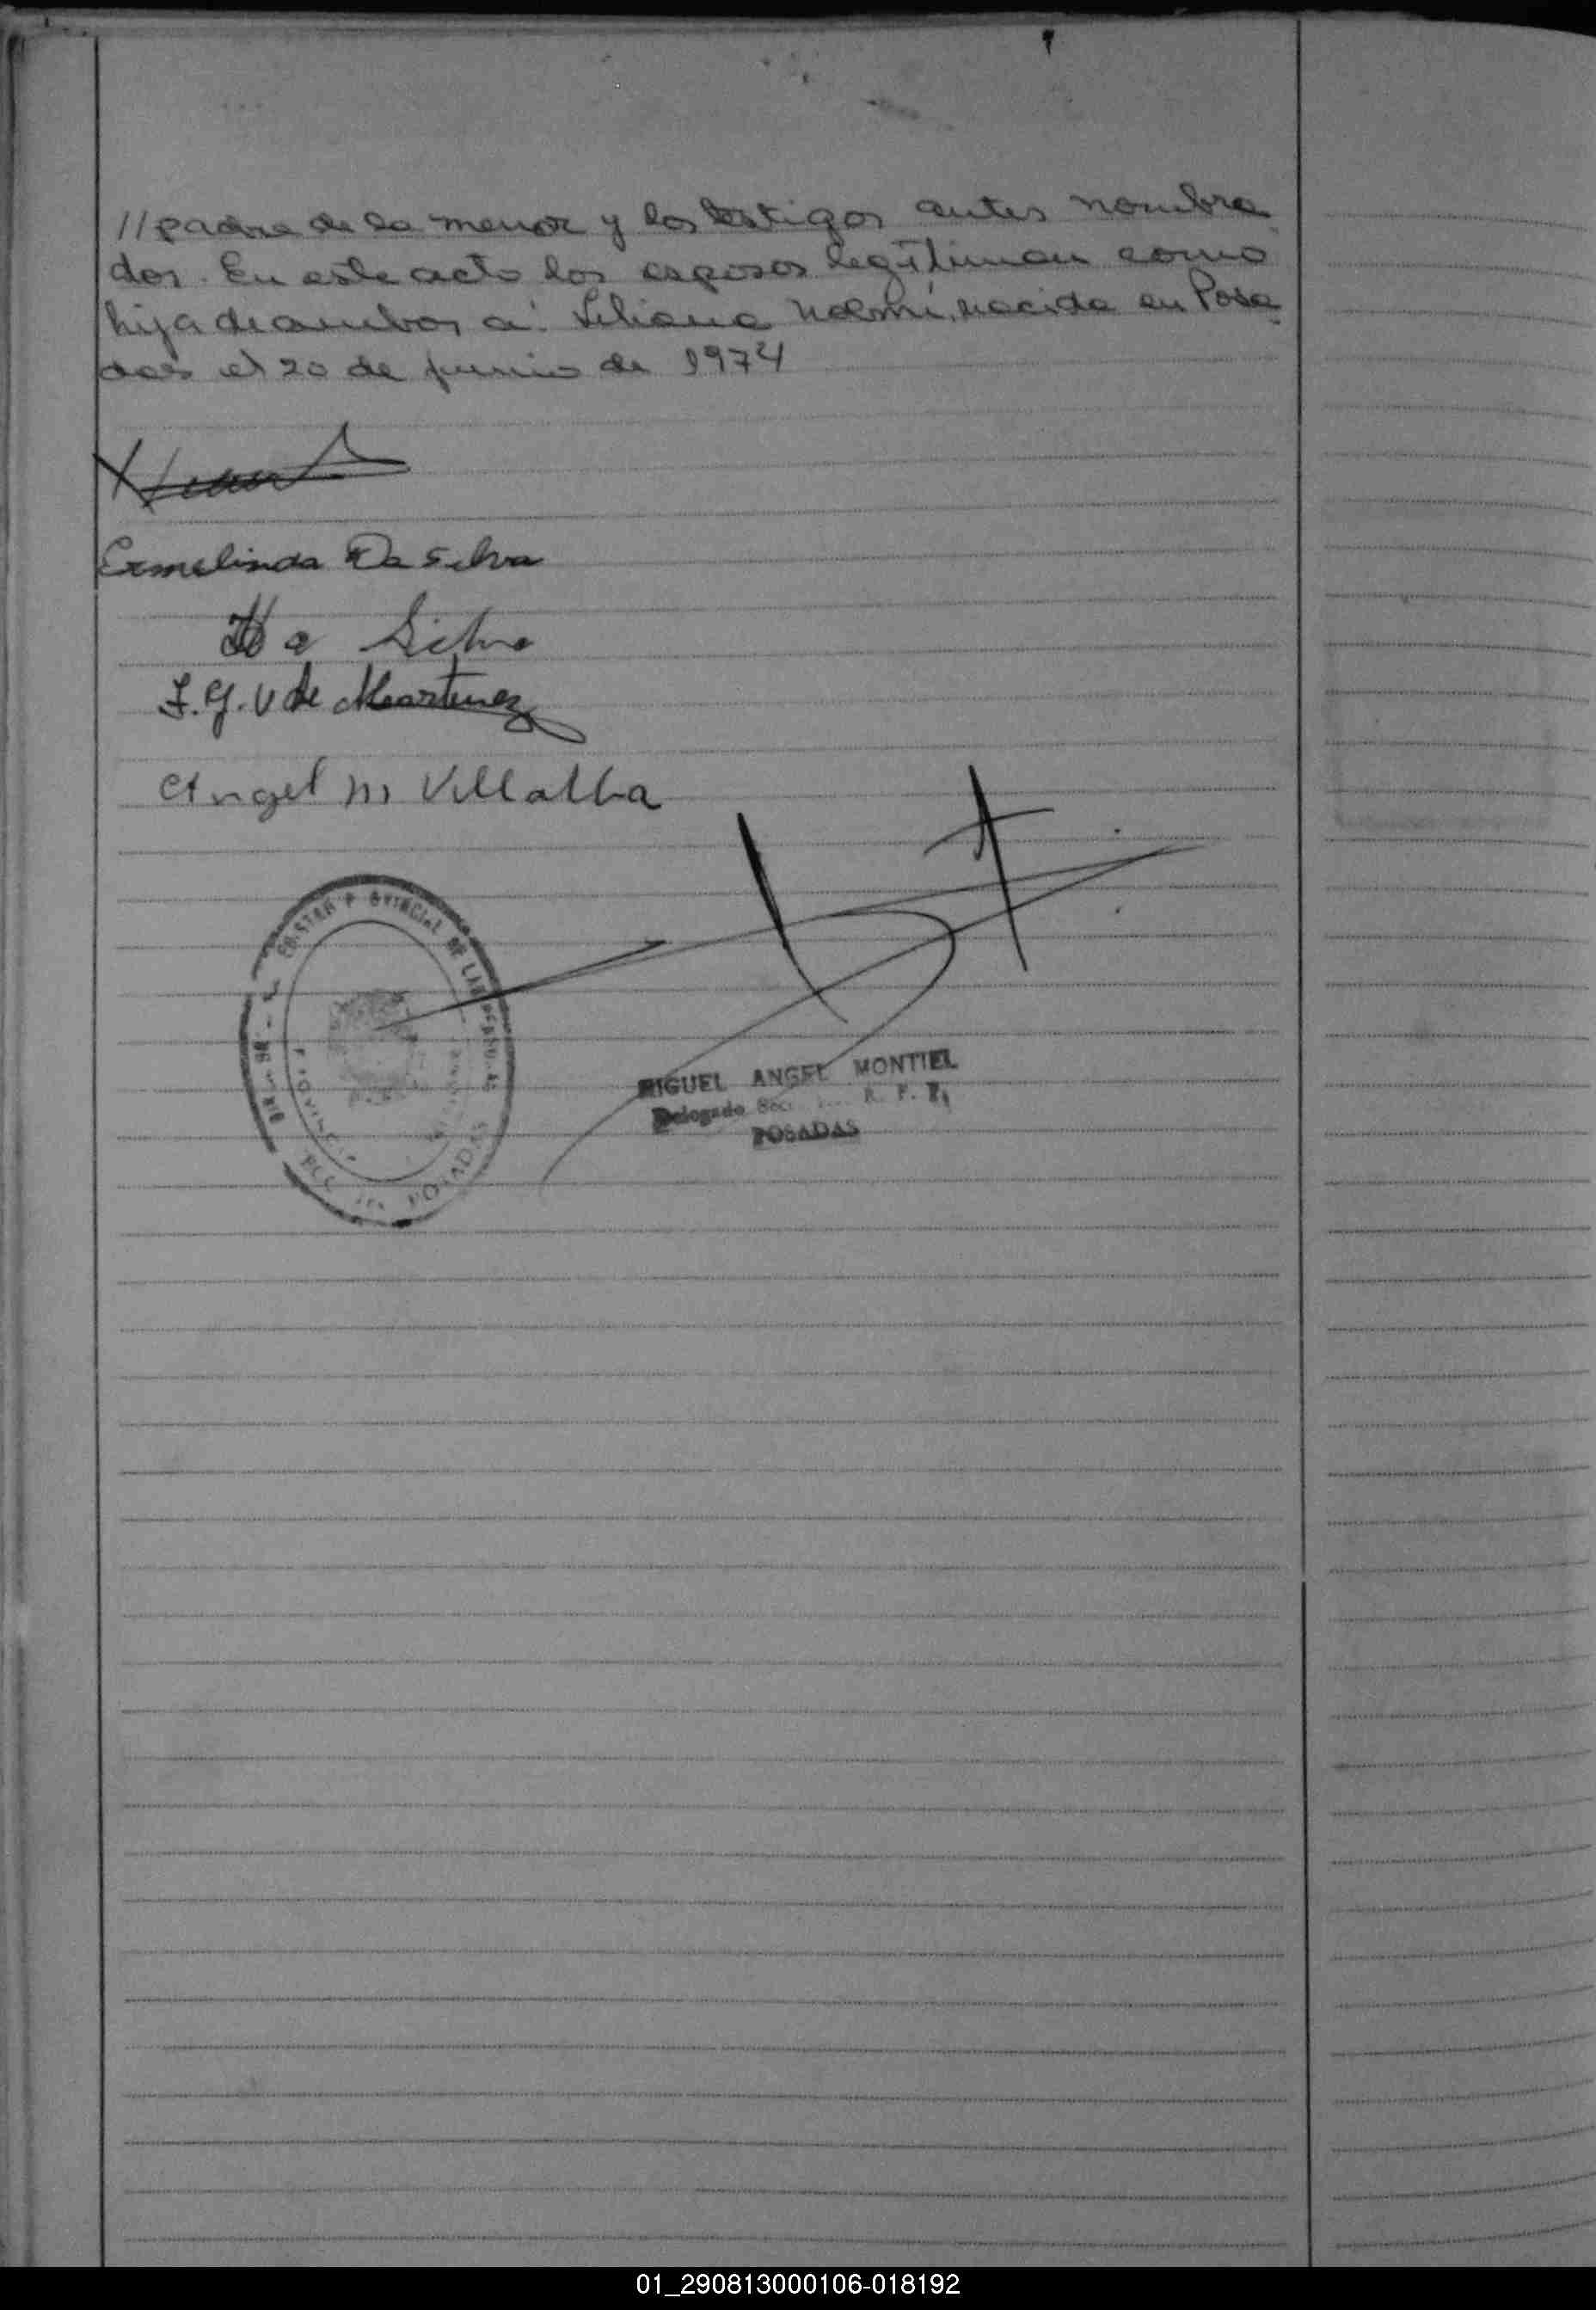 //padre de la menor y los testigos antes nombra
dos. En este acto los esposos legitiman como
hija de ambos a: Liliana Noemí, nacida en Posa
das el 20 de junio de 1974
Ermelinda Da Silva
Da Silva
F. G. V de Martinez
Angel M Villalba
MIGUEL ANGEL MONTIEL
Delegado Secc. R. P. P.
POSADAS
PROVINCIAL DE LAS PERSONAS
PROVINCIA
POSADAS
01_290813000106-018192